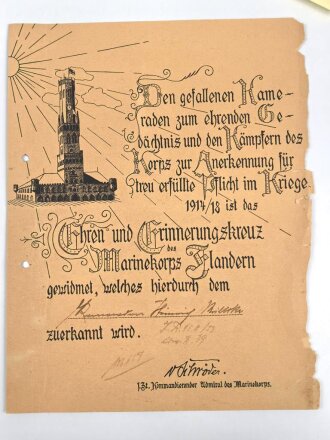 Den gefallenen Kame-
raden zum ehrenden Ge-
dächtnis und den Kämpfern des
Korps zur Anerkennung für
treu erfüllte Pflicht im Kriege
1914/18 ist das
Ehren und Erinnerungskreuz
des
Marinekorps Flandern
gewidmet, welches hierdurch dem
Heinrich
zuerkannt wird.
v Schröder
1. Zt. Kommandierender Admiral des Marinekorps.